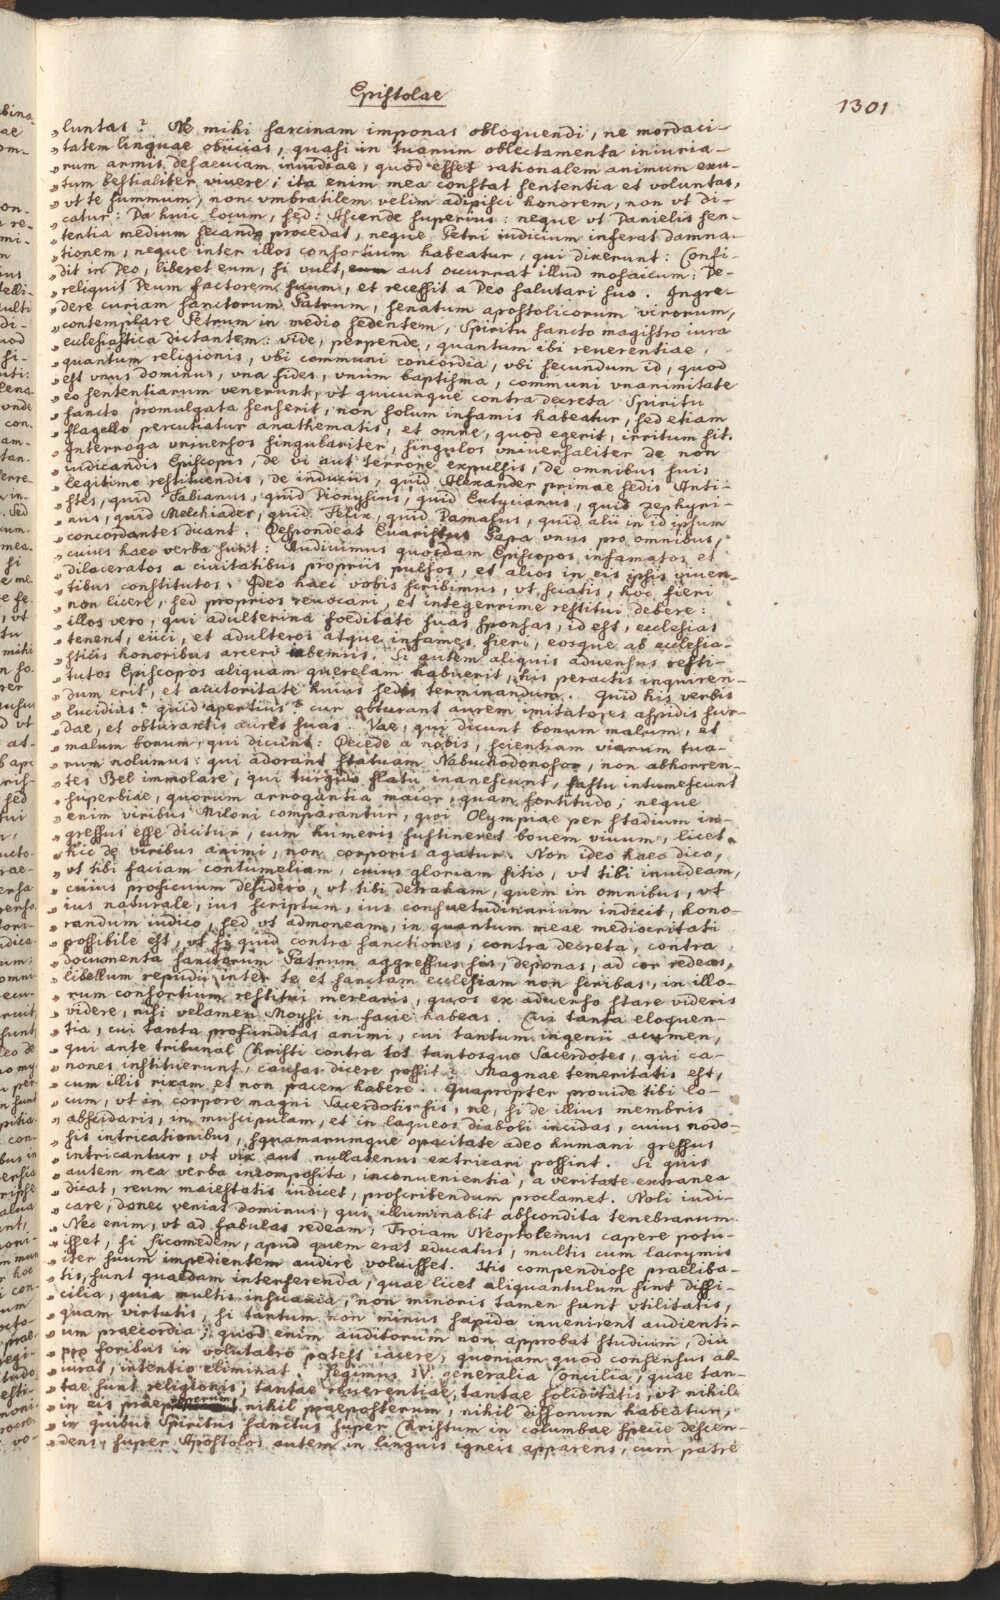 Epistolae
1301
„luntas? Ne mihi sarcinam imponas obloquendi, ne mordaci-
„tatem linguae obiicias, quasi in tuarum oblectamenta iniuria-
„rum armis desaeviam invidiae, quod esset rationalem animum exu-
„tum bestialiter vivere; ita enim mea constat sententia et voluntas,
„vt te summum, non vmbratilem velim adipisci honorem, non vt di-
„catur: Da huic locum, sed: Ascende superius: neque vt Danielis sen-
„tentia medium secando procedat, neque Petri iudicium inferat damna-
„tionem, neque inter illos consortium habeatur, qui dixerunt: Confi-
„dit in Deo, liberet eum, si vult, aut occurrat illud mosaicum: De-
„reliquit Deum factorem suum, et recessit a Deo salutari suo. Ingre-
„dere curiam sanctorum Patrum, senatum apostolicorum virorum,
„contemplare Petrum in medio sedentem, Spiritu sancto magistro iura
„ecclesiastica dictantem: vide, perpende, quantum ibi reuerentiae,
„quantum religionis, vbi communi concordia, vbi secundum id, quod
„est vnus dominus, vna fides, vnum baptisma, communi vnanimitate
„eo sententiarum venerunt, vt quicunque contra decreta Spiritu
„sancto promulgata senserit, non solum infamis habeatur, sed etiam
„flagello percutiatur anathematis, et omne, quod egerit, irritum sit.
„Interroga vniversos singulariter, singulos vniversaliter de non
„iudicandis Episcopis, de vi aut terrore expulsis, de omnibus suis
„legitime restituendis, de induciis, quid Alexander primae sedis Anti-
„stes, quid Fabianus, quid Dionysius, quid Eutycianus, quid Zephyri-
„nus, quid Melchiades, quid Felix, quid Damasus, quid alii in id ipsum
„concordantes dicant. Respondeat Euaristus Papa vnus pro omnibus,
„cuius haec verba sunt: Audiuimus quosdam Episcopos infamatos et
„dilaceratos a ciuitatibus propriis pulsos, et alios in eis ipsis viuen-
„tibus constitutos. Ideo haec vobis scribimus, vt sciatis, hoc fieri
„non licere, sed proprios reuocari, et integerrime restitui debere:
„illos vero, qui adulterina foeditate suas sponsas, id est, ecclesias
„tenent, eiici, et adulteros atque infames fieri, eosque ab ecclesia-
„sticis honoribus arceri iubemus. Si autem aliquis aduersus resti-
„tutos Episcopos aliquam querelam habuerit, his peractis inquiren-
„dum erit, et auctoritate huius sedis terminandum. Quid his verbis
„lucidius? quid apertius? cur obturant aurem imitatores aspidis sur-
„dae, et obturantis aures suas. Vae, qui dicunt bonum malum, et
„malum bonum, qui dicunt: Recede a nobis, scientiam viarum tua-
„rum nolumus: qui adorant statuam Nabuchodonosor, non abhorren-
„tes Bel immolare, qui turgido flatu inanescunt, fastu intumescunt
„superbiae, quorum arrogantia maior, quam fortitudo; neque
„enim viribus Miloni comparantur, qui Olympiae per stadium in-
„gressus esse dicitur, cum humeris sustineret bouem viuum, licet
„hic de viribus animi, non corporis agatur. Non ideo haec dico,
„vt tibi faciam contumeliam, cuius gloriam sitio, vt tibi inuideam,
„cuius proficuum desidero, vt tibi detraham, quem in omnibus, vt
„ius naturale, ius scriptum, ius consuetudinarium indicit, hono-
„randum iudico, sed vt admoneam, in quantum meae mediocritati
„possibile est, vt si quid contra sanctiones, contra decreta, contra
„documenta sanctorum Patrum aggressus sis, deponas, ad cor redeas,
„libellum repudii inter te et sanctam ecclesiam non scribas, in illo-
„rum consortium restitui merearis, quos ex aduerso stare videris
„videre, nisi velamen Moysi in facie habeas. Cui tanta eloquen-
„tia, cui tanta profunditas animi, cui tantum ingenii acumen,
„qui ante tribunal Christi contra tot tantosque Sacerdotes, qui ca-
„nones instituerunt, causas dicere possit? Magnae temeritatis est,
„cum illis rixam et non pacem habere. Quapropter prouide tibi lo-
„cum, vt in corpore magni Sacerdotis sis, ne, si de illius membris
„abscidaris, in muscipulam, et in laqueos diaboli incidas, cuius nodo-
„sis intricationibus, squamarumque opacitate adeo humani gressus
„intricantur, vt vix aut nullatenus extricari possint. Si quis
„autem mea verba incomposita, inconuenientia, a veritate extranea
„dicat, reum maiestatis iudicet, proscribendum proclamet. Noli iudi-
„care, donec veniat dominus, qui illuminabit abscondita tenebrarum.
„Nec enim, vt ad fabulas redeam, Troiam Neoptolemus capere potu-
„isset, si Licomedem, apud quem erat educatus, multis cum lacrymis
„iter suum impedientem audire voluisset. His compendiose praeliba-
„tis, sunt quaedam interserenda, quae licet aliquantulum sint diffi-
„cilia, quia multis insuavia, non minoris tamen sunt vtilitatis,
„quam virtutis, si tantum non minus sapida invenirent audienti-
„um praecordia; quod enim auditorum non approbat studium, diu
„pro foribus in volutabro potest iacere, quoniam quod consensus ab-
„iurat, intentio eliminat. Legimus IV. generalia Concilia, quae tan-
„tae sunt religionis, tantae reuerentiae, tantae soliditatis, vt nihil
„in eis nihil praeposterum, nihil dissonum habeatur,
„in quibus Spiritus sanctus super Christum in columbae specie descen-
„dens, super Apostolos autem in linguis igneis apparens, cum patre